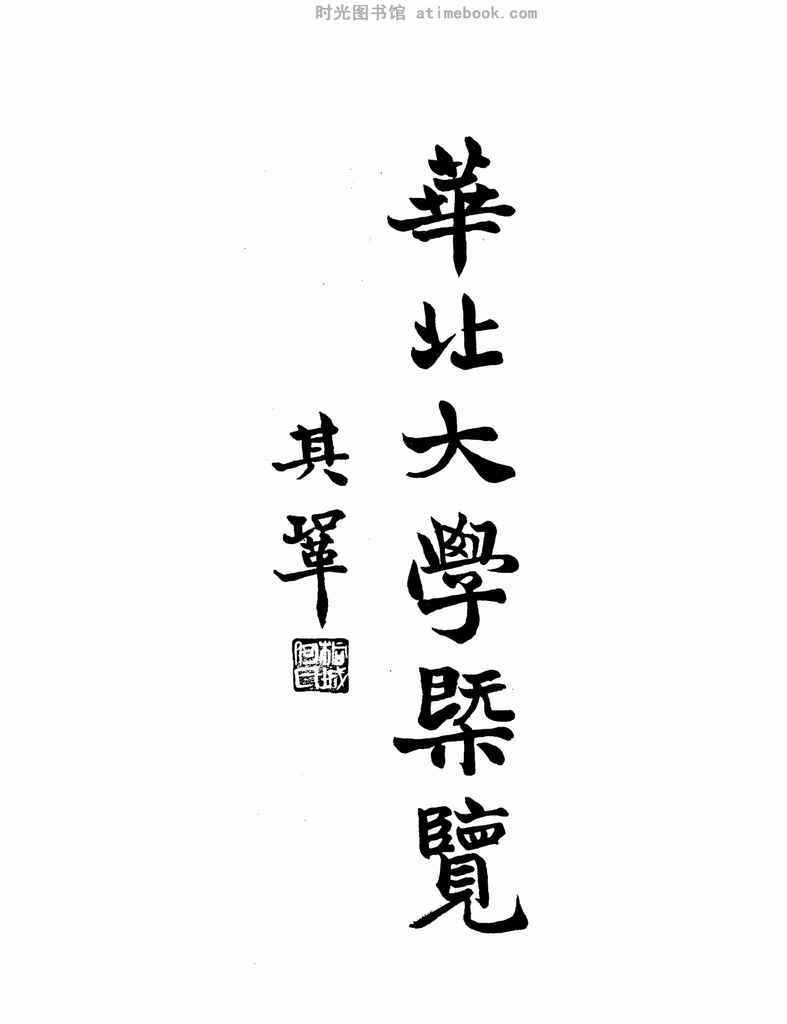 时光图书馆 atimebook.com
華北大學槩覽
其鞏